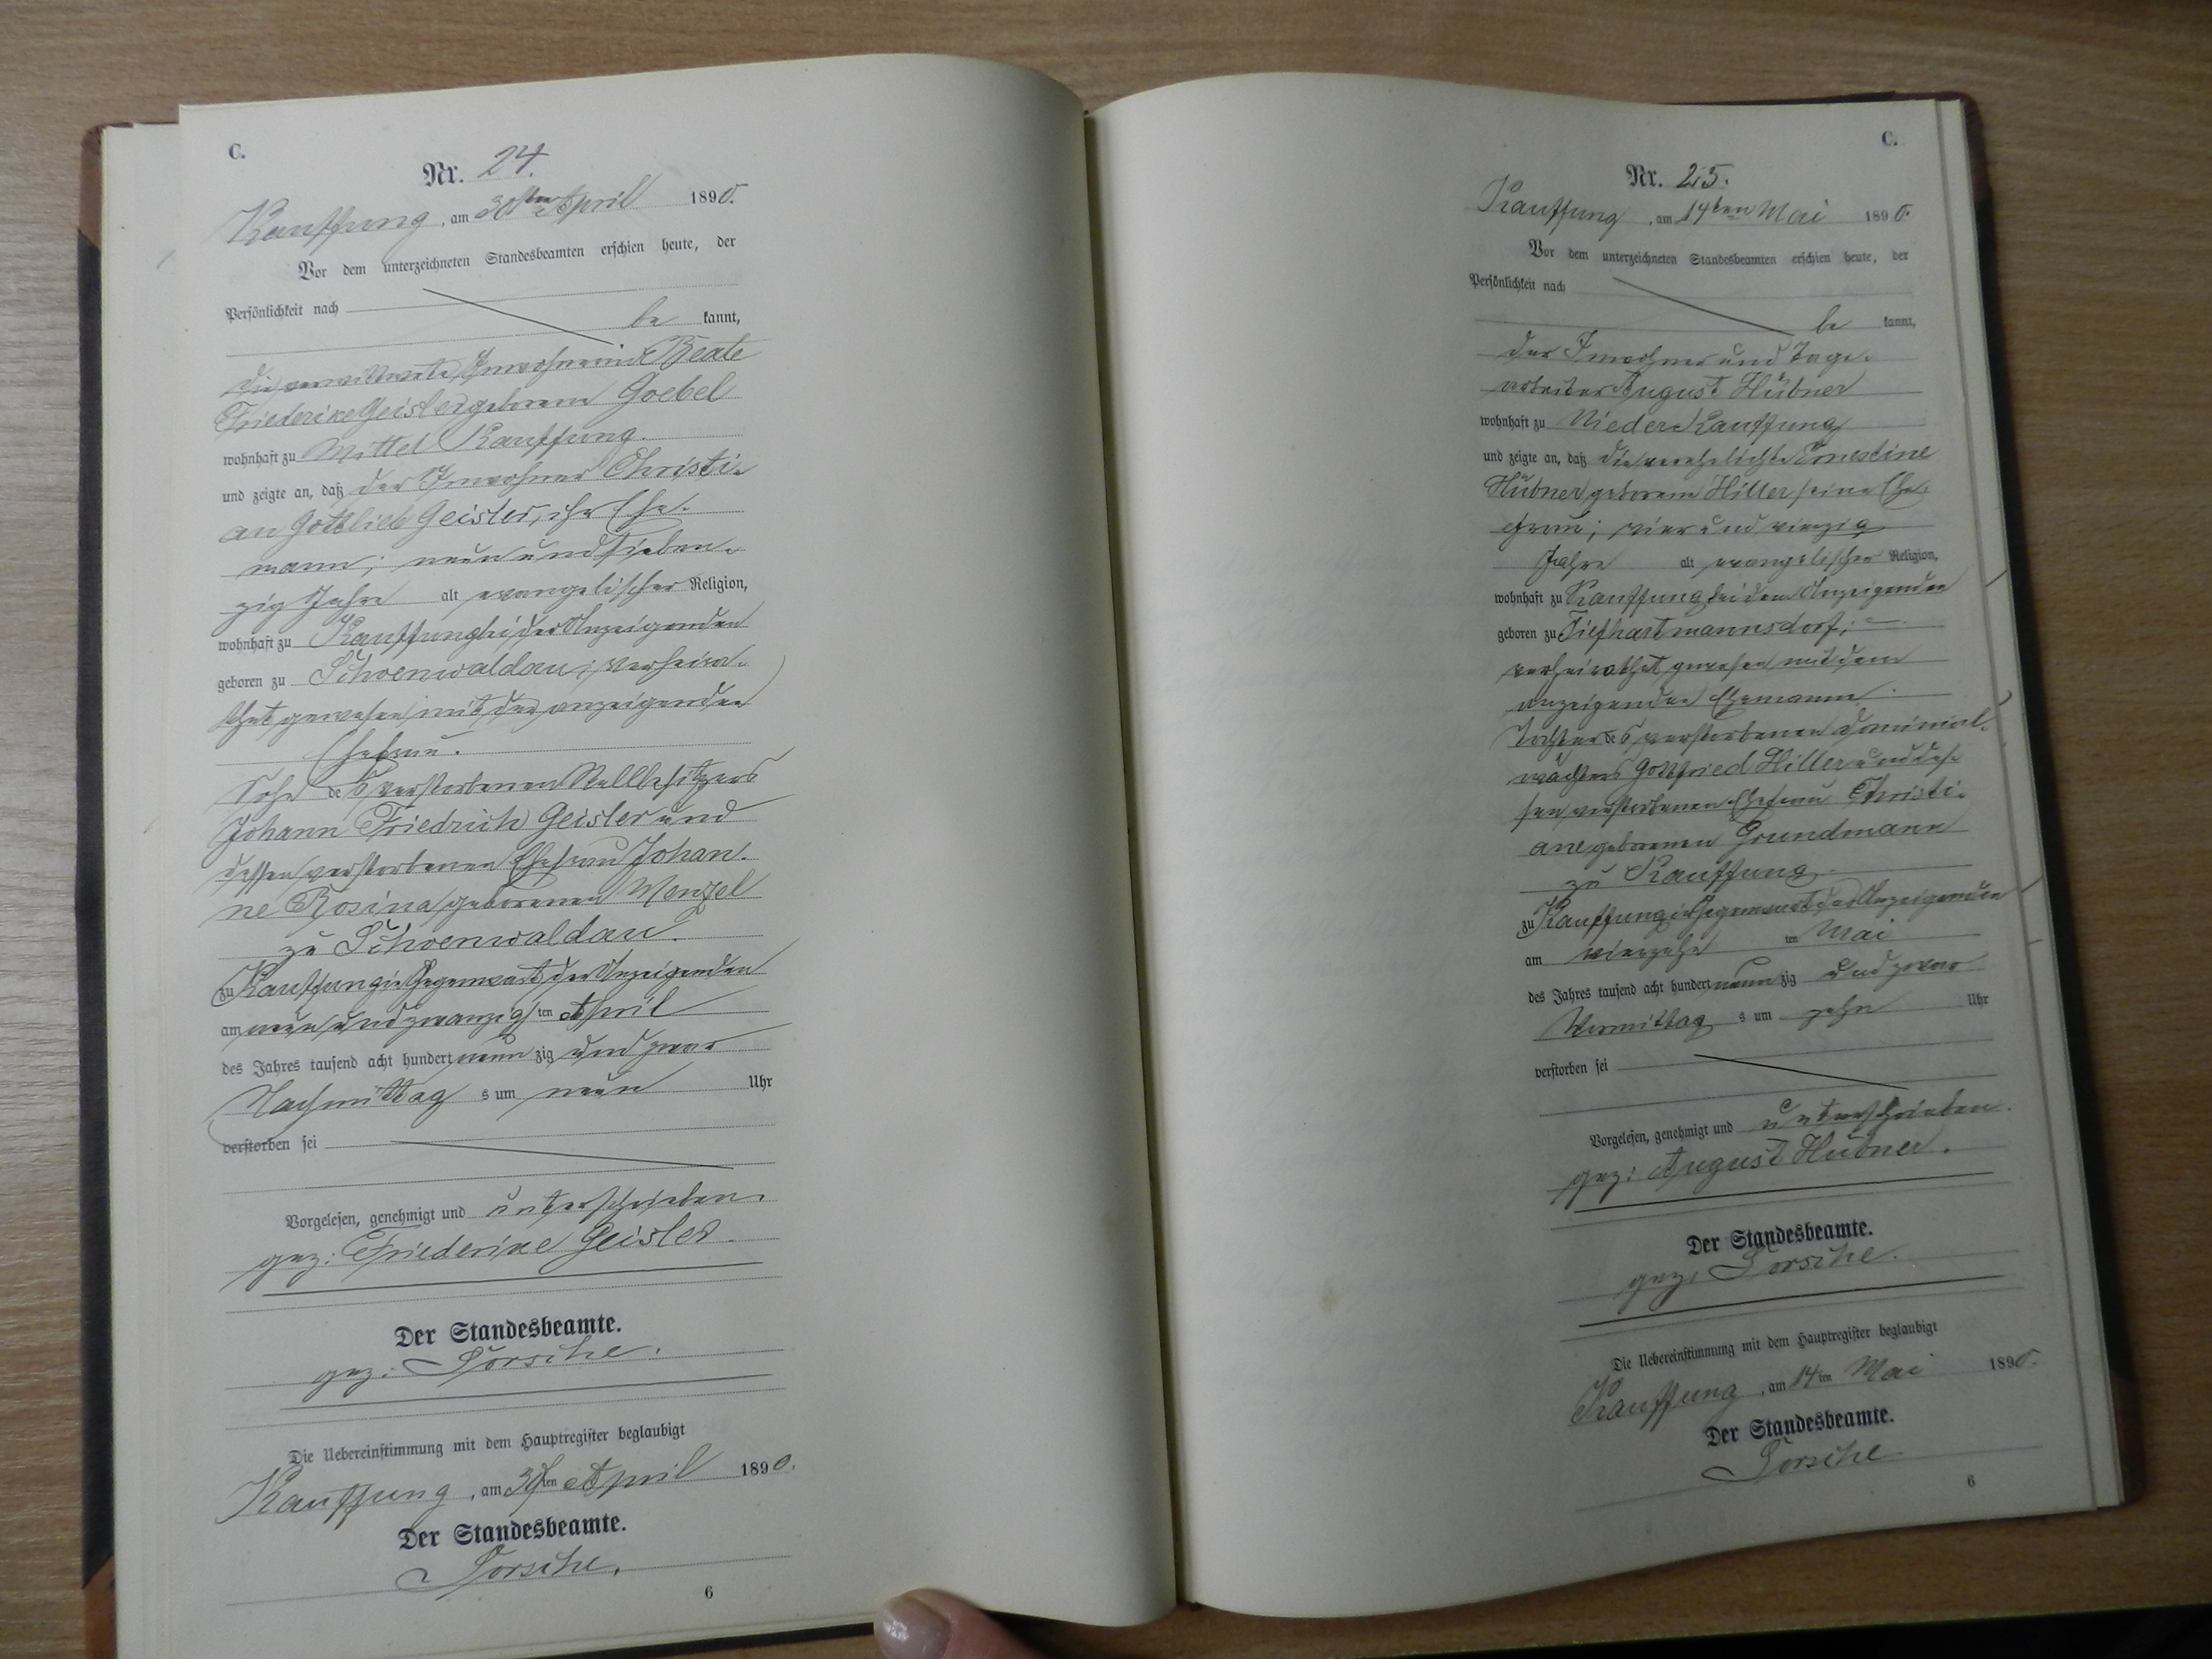 C.
Nr. 24.
Kauffung, am 30ten April 1890.
Vor dem unterzeichneten Standesbeamten erschien heute, der
Persönlichkeit nach
be kannt,
die verwittwete Inwohnerin Beate
Friederike Geisler geborene Goebel
wohnhaft zu Mittel Kauffung.
und zeigte an, daß der Inwohner Christi-
an Gottlieb Geisler, ihr Ehe-
mann; neun und sieben-
zig Jahre alt evangelischer Religion,
wohnhaft zu Kauffung bei der Anzeigenden
geboren zu Schoenwaldau; verheira-
thet gewesen mit der anzeigenden
Ehefrau.
Sohn des verstorbenen Stellbesitzers
Johann Friedrich Geisler und
dessen verstorbenen Ehefrau Johan-
ne Rosina geborenen Wenzel
zu Schoenwaldau.
zu Kauffung in Gegenwart der Anzeigenden
am neun und zwanzig ten April
des Jahres tausend acht hundert neun zig und zwar
Nachmittag s um neun Uhr
verstorben sei
Vorgelesen, genehmigt und unterschrieben.
gez: Friederike Geisler.
Der Standesbeamte.
gez:
Die Uebereinstimmung mit dem Hauptregister beglaubigt
Kauffung, am 30ten April 1890.
Der Standesbeamte.
6
C.
Nr. 25.
Kauffung, am 14ten Mai 1890.
Vor dem unterzeichneten Standesbeamten erschien heute, der
Persönlichkeit nach
be kannt,
der Inwohner und Tage-
arbeiter August Hübner
wohnhaft zu Nieder Kauffung
und zeigte an, daß die verehelichte Ernestine
Hübner geborene Hiller seine Ehe-
frau; vier und vierzig
Jahre alt evangelischer Religion,
wohnhaft zu Kauffung bei dem Anzeigenden
geboren zu Tiefhartmannsdorf;
verheirathet gewesen mit dem
anzeigenden Ehemanne.
Tochter des verstorbenen Dominial-
wächters Gottfried Hiller und des-
sen verstorbenen Ehefrau Christi-
ane geborenen Grundmann
zu Kauffung.
zu Kauffung in Gegenwart des Anzeigenden
am vierzehn ten Mai
des Jahres tausend acht hundert neun zig und zwar
Vormittag s um zehn Uhr
verstorben sei
Vorgelesen, genehmigt und unterschrieben.
gez: August Hübner.
Der Standesbeamte.
gez:
Die Uebereinstimmung mit dem Hauptregister beglaubigt
Kauffung, am 14ten Mai 1890.
Der Standesbeamte.
6